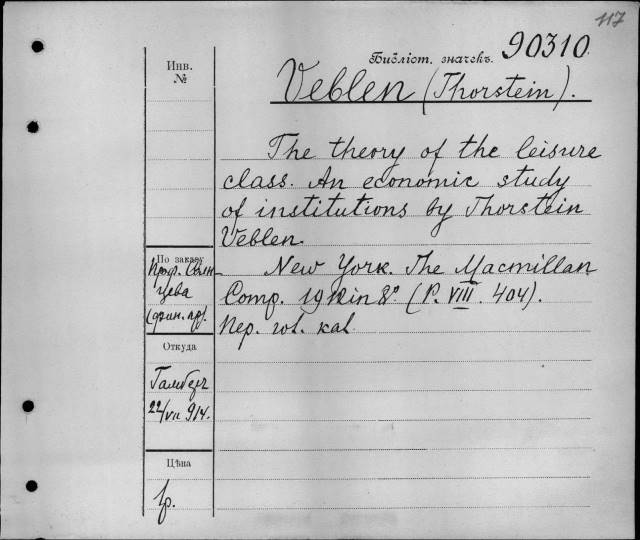 117
Библіот. значекъ. 90310
Инв.
№
Veblen (Thorstein).
The theory of the leisure
class. An economic study
of institutions by Thorstein
Veblen.
По заказу
Проф. Солн-
цева
(фин. пр).
New York. The Macmillan
Comp. 1912 in 8° (P. VIII. 404).
Пер. кол. кal.
Откуда
Гамберг
22/VII 914.
Цѣна